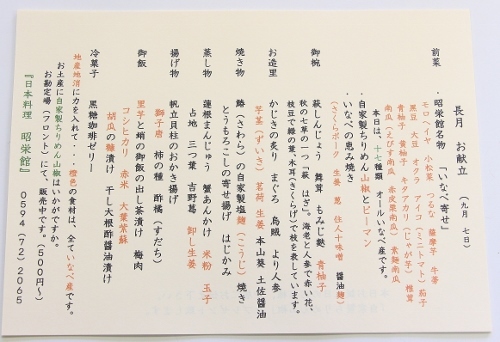 長月　お献立　（九月　七日）
前菜
・昭栄館名物　「いなべ寄せ」
モロヘイヤ　小松菜　つるな　薩摩芋　牛蒡
黒豆　大豆　オクラ　アイコ（ミニトマト）茄子
青柚子　黄柚子　キタアカリ（じゃが芋）　椎茸
南瓜（えびす南瓜　赤皮栗南瓜）　素麺南瓜
本日は、十七種類　オールいなべ産です。
・自家製ちりめん山椒とピーマン
・いなべの恵み焼き
（きくらげ　生姜　葱　住人十味噌　醤油麹）
御椀
萩しんじょう　舞茸　もみじ麩　青柚子
秋の七草の一つ「萩　はぎ」。海老と人参で赤い花、
枝豆で緑の葉、木耳（きくらげ）で枝を表しています。
お造里
かじきの炙り　まぐろ　烏賊　より人参
芋茎（ずいき）　茗荷　生姜　本山葵　土佐醤油
焼き物
鰆（さわら）の自家製塩麹（こうじ）焼き
とうもろこしの寄せ揚げ　はじかみ
蒸し物
蓮根まんじゅう　蟹あんかけ　米粉　玉子
占地　三つ葉　吉野葛　卸し生姜
揚げ物
帆立貝柱のおかき揚げ
獅子唐　柿の種　酢橘（すだち）
御飯
里芋と蛸の御飯の出し茶漬け　梅肉
コシヒカリ　赤米　大葉紫蘇
胡瓜の麹漬け　干し大根酢醤油漬け
冷菓子
黒糖珈琲ゼリー
地産地消に力を入れて・・橙色の食材は、全ていなべ産です。
お土産に自家製ちりめん山椒はいかがですか。
お勘定場（フロント）にて、販売中です。（５００円～）
『日本料理　昭栄館』　０５９４（７２）２０６５